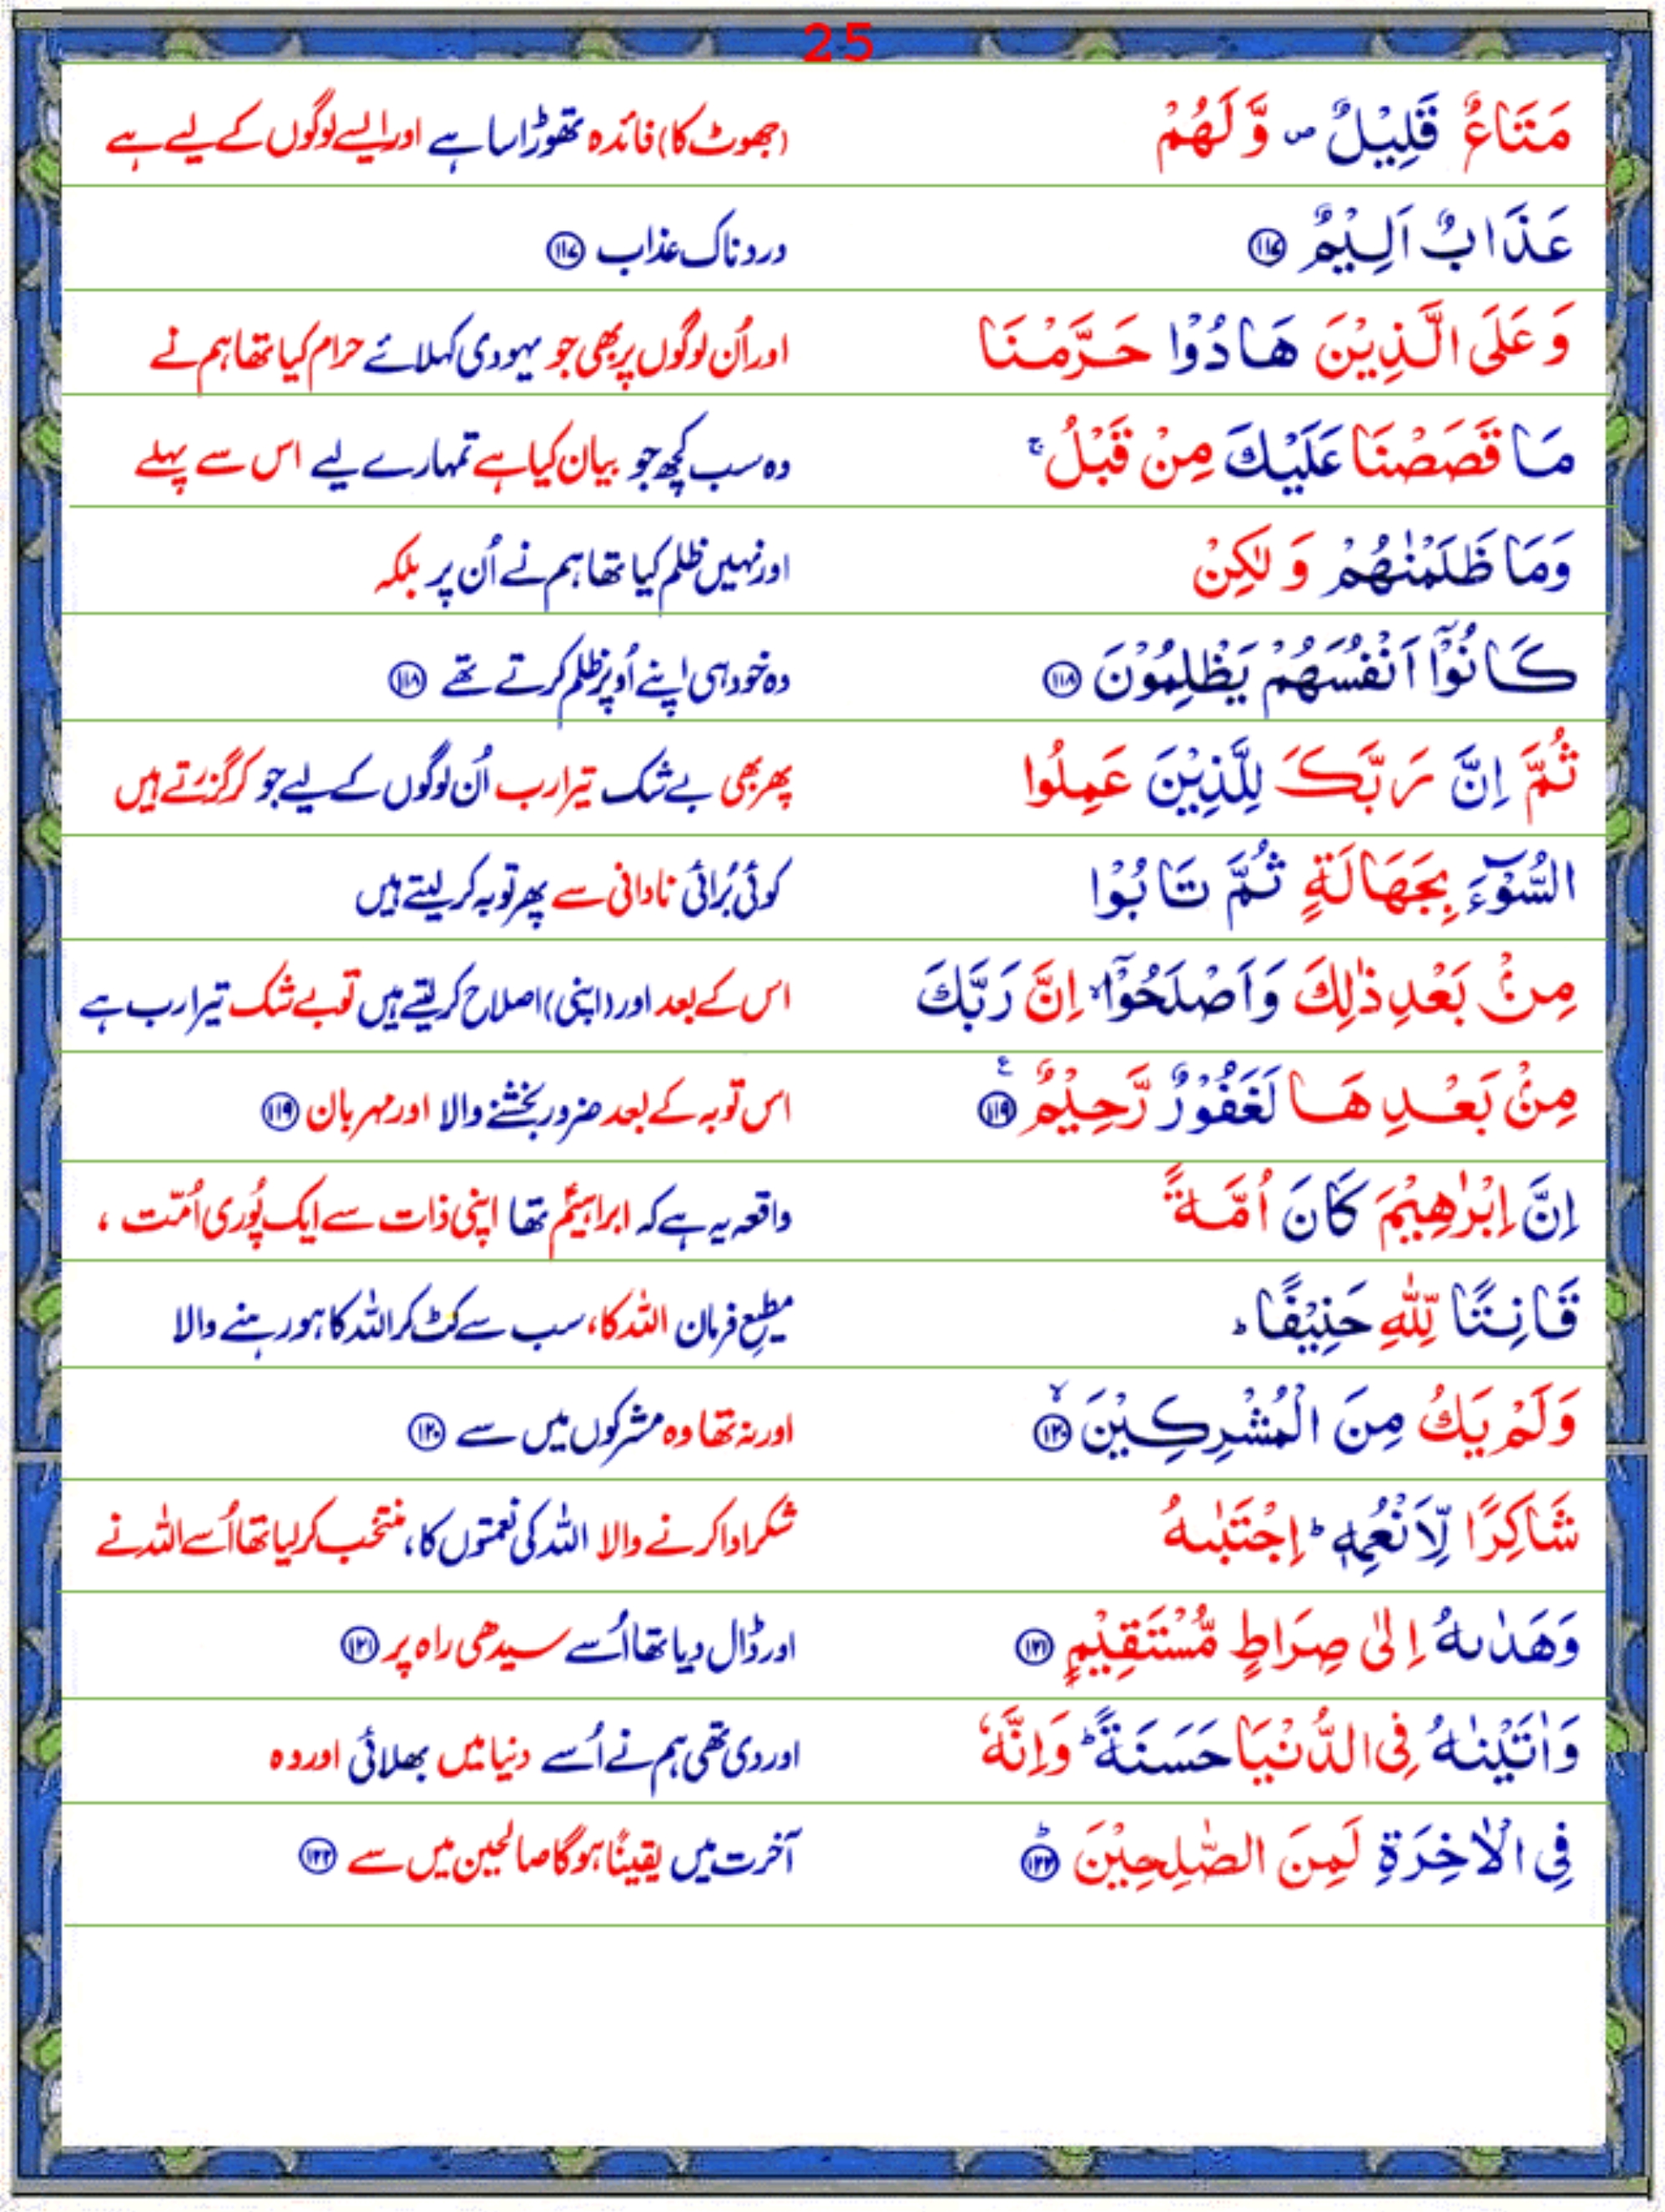 25
مَتَاعٌ قَلِيْلٌ ۪ وَّ لَهُمْ (جھوٹ کا) فائدہ تھوڑا سا ہے اور ایسے لوگوں کے لیے ہے
عَذَابٌ اَلِيْمٌ ۝۱۱۷ دردناک عذاب ۝۱۱۷
وَ عَلَى الَّذِيْنَ هَادُوْا حَرَّمْنَا اور اُن لوگوں پر بھی جو یہودی کہلائے حرام کیا تھا ہم نے
مَا قَصَصْنَا عَلَيْكَ مِنْ قَبْلُ ۚ وہ سب کچھ جو بیان کیا ہے تمہارے لیے اس سے پہلے
وَمَا ظَلَمْنٰهُمْ وَ لٰكِنْ اور نہیں ظلم کیا تھا ہم نے اُن پر بلکہ
كَانُوْۤا اَنْفُسَهُمْ يَظْلِمُوْنَ ۝۱۱۸ وہ خود ہی اپنے اُوپر ظلم کرتے تھے ۝۱۱۸
ثُمَّ اِنَّ رَبَّكَ لِلَّذِيْنَ عَمِلُوا پھر بھی بے شک تیرا رب اُن لوگوں کے لیے جو کر گزرتے ہیں
السُّوْٓءَ بِجَهَالَةٍ ثُمَّ تَابُوْا کوئی بُرائی نادانی سے پھر توبہ کر لیتے ہیں
مِنْۢ بَعْدِ ذٰلِكَ وَاَصْلَحُوْۤا ۙ اِنَّ رَبَّكَ اس کے بعد اور (اپنی) اصلاح کر لیتے ہیں تو بے شک تیرا رب ہے
مِنْۢ بَعْدِهَا لَغَفُوْرٌ رَّحِيْمٌ ۝۱۱۹ ۧ اس توبہ کے بعد ضرور بخشنے والا اور مہربان ۝۱۱۹
اِنَّ اِبْرٰهِيْمَ كَانَ اُمَّةً واقعہ یہ ہے کہ ابراہیمؑ تھا اپنی ذات سے ایک پُوری اُمّت ،
قَانِتًا لِّلّٰهِ حَنِيْفًا ؕ مطیعِ فرمان اللہ کا، سب سے کٹ کر اللہ کا ہو رہنے والا
وَلَمْ يَكُ مِنَ الْمُشْرِكِيْنَ ۝۱۲۰ ۙ اور نہ تھا وہ مشرکوں میں سے ۝۱۲۰
شَاكِرًا لِّاَنْعُمِهٖ ؕ اِجْتَبٰىهُ شکر ادا کرنے والا اللہ کی نعمتوں کا، منتخب کر لیا تھا اُسے اللہ نے
وَهَدٰىهُ اِلٰى صِرَاطٍ مُّسْتَقِيْمٍ ۝۱۲۱ اور ڈال دیا تھا اُسے سیدھی راہ پر ۝۱۲۱
وَاٰتَيْنٰهُ فِى الدُّنْيَا حَسَنَةً ؕ وَاِنَّهٗ اور دی تھی ہم نے اُسے دنیا میں بھلائی اور وہ
فِى الْاٰخِرَةِ لَمِنَ الصّٰلِحِيْنَ ۝۱۲۲ ؕ آخرت میں یقینًا ہو گا صالحین میں سے ۝۱۲۲